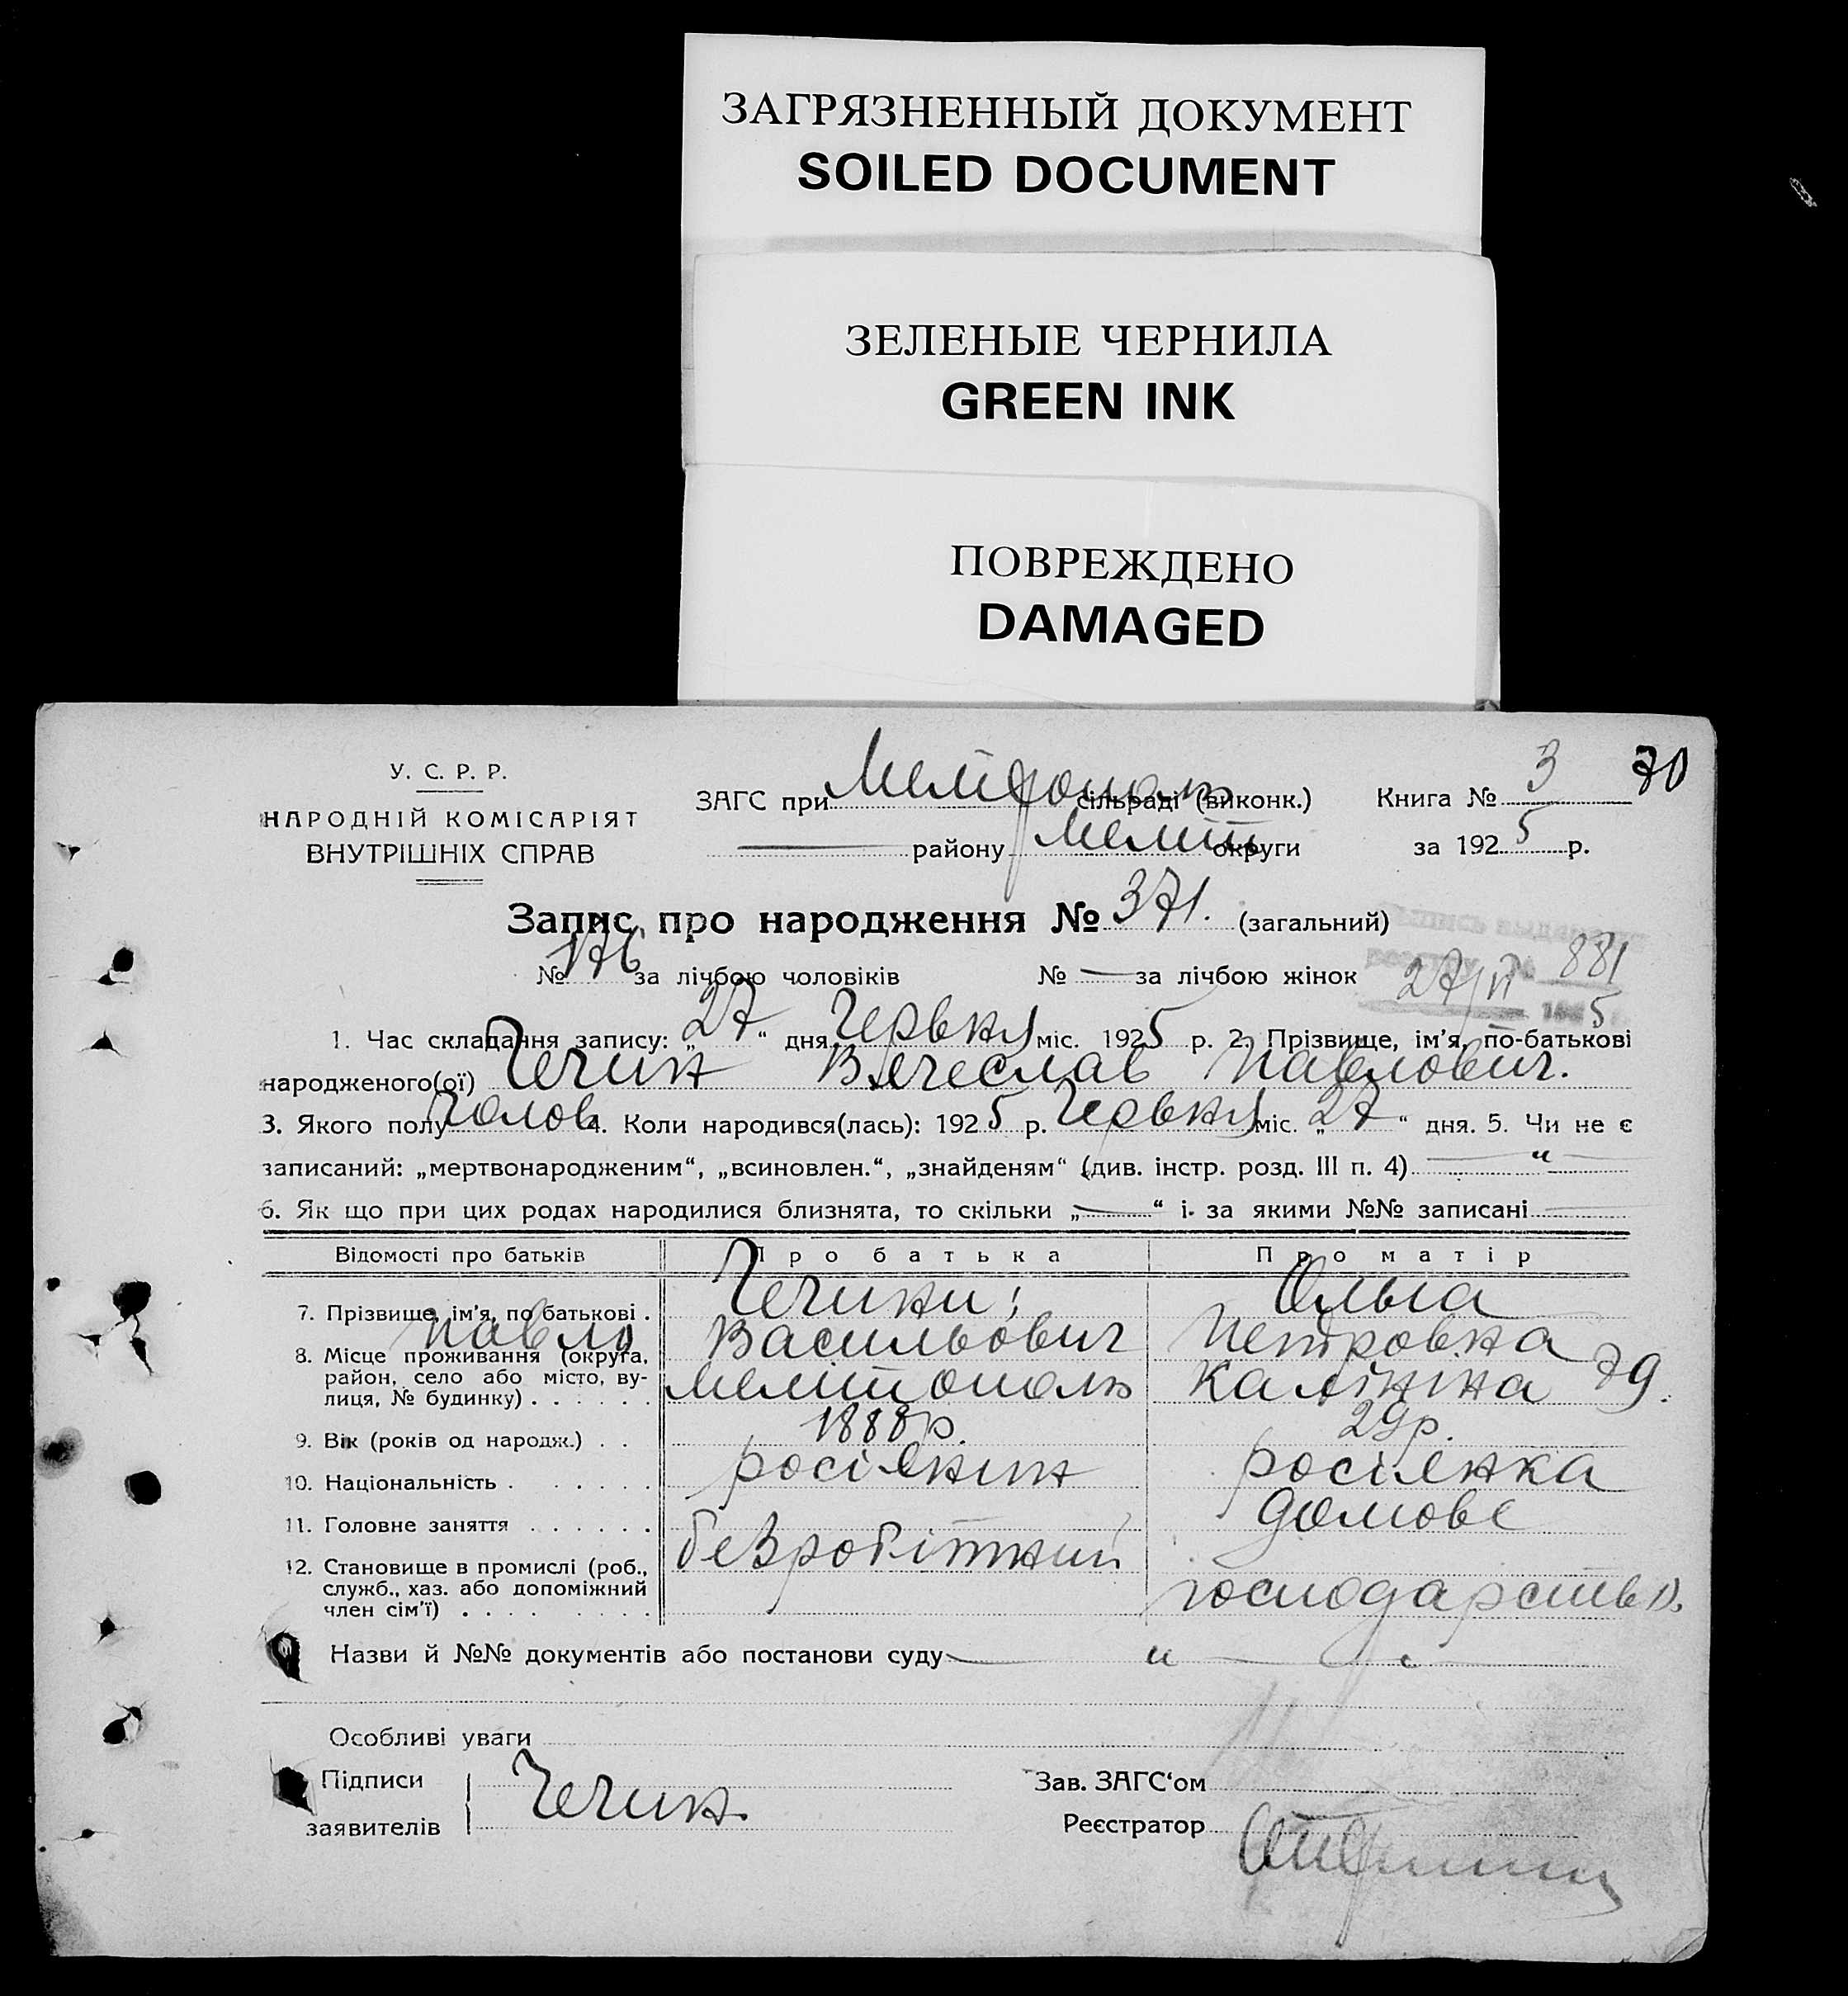 ЗАГРЯЗНЕННЫЙ ДОКУМЕНТ
SOILED DOCUMENT
ЗЕЛЕНЫЕ ЧЕРНИЛА
GREEN INK
ПОВРЕЖДЕНО
DAMAGED
У. С. Р. Р.
НАРОДНІЙ КОМІСАРІЯТ
ВНУТРІШНІХ СПРАВ
ЗАГС при Мелітополь сільраді (виконк.) Книга № 3 70
— району Меліт. округи за 1925 р.
Запис про народження № 371. (загальний)
№ 176 за лічбою чоловіків № — за лічбою жінок 27/VI 881
1. Час складання запису: „27“ дня Червня міс. 1925 р. 2. Прізвище, ім’я, по-батькові
народженого(ої) Чечин Вячеслав Павлович.
3. Якого полу чолов. 4. Коли народився(лась): 1925 р. Червня міс. „27“ дня. 5. Чи не є
записаний: „мертвонародженим“, „всиновлен.“, „знайденям“ (див. інстр. розд. III п. 4) — „ —
6. Як що при цих родах народилися близнята, то скільки „—“ і за якими №№ записані —
Відомості про батьків Про батька Про матір
7. Прізвище, ім’я, по батькові . Чечини; Ольга
Павло Васильович Петровна
8. Місце проживання (округа,
район, село або місто, ву-
лиця, № будинку) . . . . . . Мелітополь Калініна 79.
9. Вік (років од народж.) . . 1888 р. 29 р.
10. Національність . . . . . . росіянин росіянка
11. Головне заняття . . . . . . безробітний домове
12. Становище в промислі (роб.,
служб., хаз. або допоміжний
член сім’ї) . . . . . . . . господарство.
Назви й №№ документів або постанови суду — „ —
Особливі уваги
Підписи
заявителів Чечин.
Зав. ЗАГС‘ом
Реєстратор